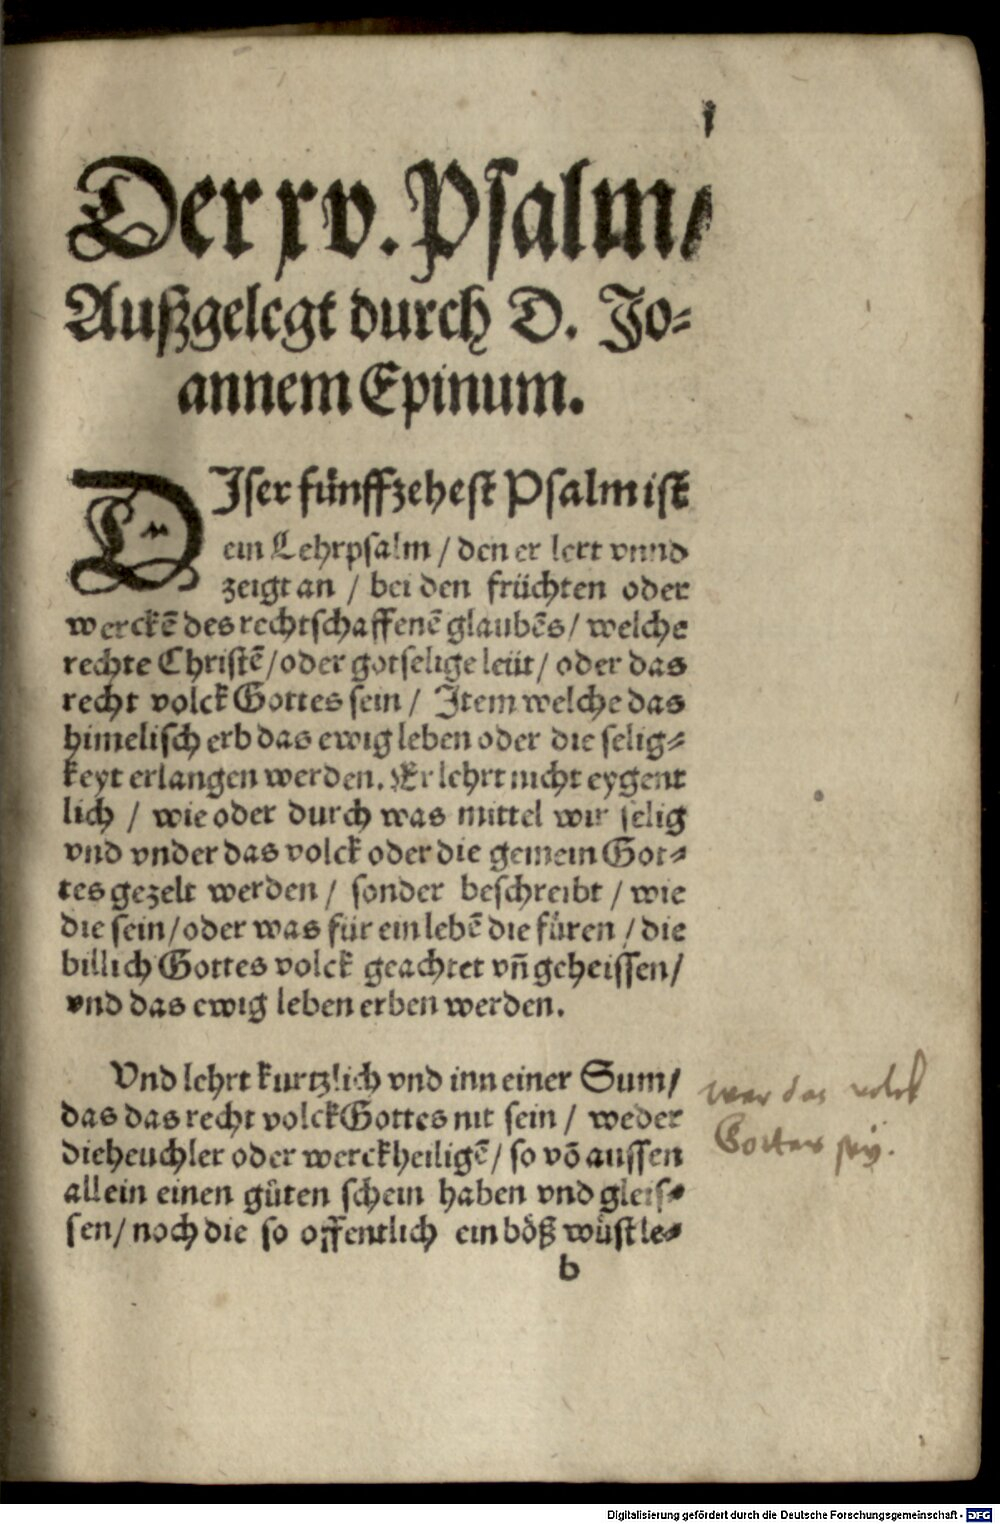 Der xv. Psalm/
Außgelegt durch D. Jo⸗
annem Epinum.
DJser fünffzehest Psalm ist
ein Lehrpsalm / den er lert vnnd
zeigt an / bei den früchten oder
werckē des rechtschaffenē glaubēs / welche
rechte Christē / oder gotselige leüt / oder das
recht volck Gottes sein / Jtem welche das
himelisch erb das ewig leben oder die selig⸗
keyt erlangen werden. Er lehrt nicht eygent
lich / wie oder durch was mittel wir selig
vnd vnder das volck oder die gemein Got⸗
tes gezelt werden / sonder beschreibt / wie
die sein / oder was für ein lebē die füren / die
billich Gottes volck geachtet vñ geheissen /
vnd das ewig leben erben werden.
Vnd lehrt kurtzlich vnd inn einer Sum /
das das recht volck Gottes nit sein / weder
die heuchler oder werckheiligē / so vō aussen
allein einen gůten schein haben vnd gleis⸗
sen / noch die so offentlich ein böß wüst le⸗
b
wer das volck
Gottes sey.
Digitalisierung gefördert durch die Deutsche Forschungsgemeinschaft - DFG